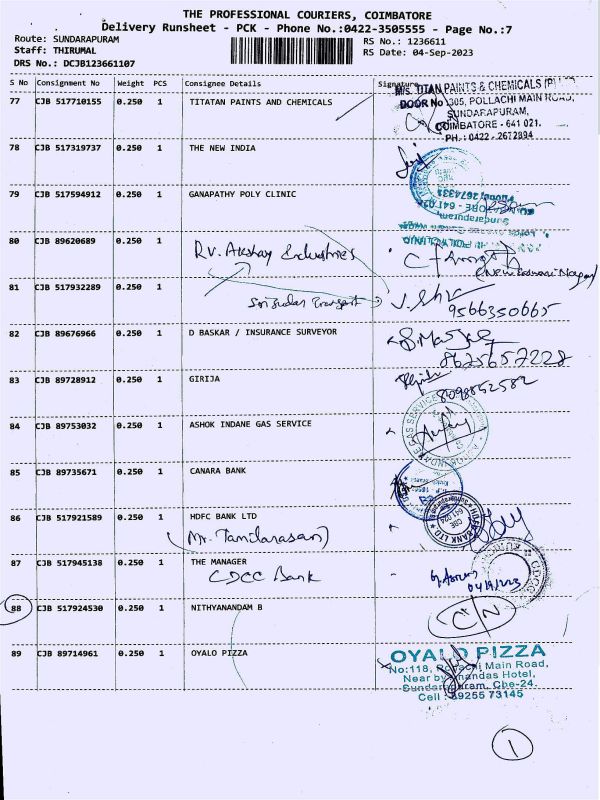 THE PROFESSIONAL COURIERS, COIMBATORE
Delivery Runsheet - PCK - Phone No.:0422-3505555 - Page No.:7
Route: SUNDARAPURAM
RS No.: 1236611
Staff: THIRUMAL
RS Date: 04-Sep-2023
DRS No.: DCJB123661107
S No Consignment No Weight PCS Consignee Details Signature
M/S. TITAN PAINTS & CHEMICALS
77 CJB 517710155 0.250 1 TITATAN PAINTS AND CHEMICALS
DOOR No 305, POLLACHI MAIN ROAD,
SUNDARAPURAM,
COIMBATORE - 641 021.
PH.: 0422 - 2672894
78 CJB 517319737 0.250 1 THE NEW INDIA
79 CJB 517594912 0.250 1 GANAPATHY POLY CLINIC
80 CJB 89620689 0.250 1
R.V. Akshay Industries
81 CJB 517932289 0.250 1
9566350665
82 CJB 89676966 0.250 1 D BASKAR / INSURANCE SURVEYOR
8625657228
83 CJB 89728912 0.250 1 GIRIJA
8098852582
84 CJB 89753032 0.250 1 ASHOK INDANE GAS SERVICE
85 CJB 89735671 0.250 1 CANARA BANK
86 CJB 517921589 0.250 1 HDFC BANK LTD
(Mr. Tamilarasan)
87 CJB 517945138 0.250 1 THE MANAGER
CDCC Bank
88 CJB 517924530 0.250 1 NITHYANANDAM B
C/N
89 CJB 89714961 0.250 1 OYALO PIZZA
OYALO PIZZA
No:118, Pollachi Main Road,
Near by Anandas Hotel,
Sundarapuram, Cbe-24.
Cell : 89255 73145
1